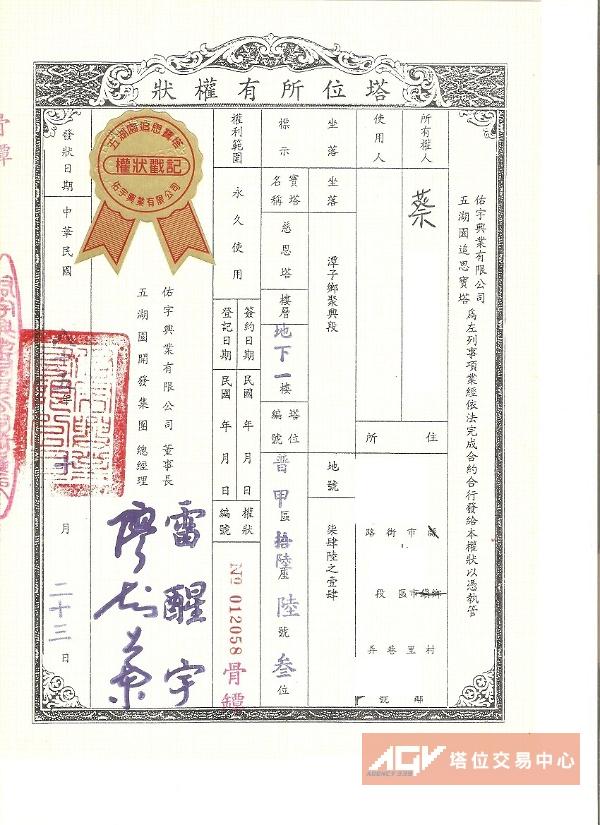 塔位所有權狀
佑宇興業有限公司
五湖園追思寶塔
為左列事項業經依法完成合約合行發給本權狀以憑執管
所有權人
蔡
住所
縣市街路
鄉鎮市區段
村里巷弄
鄰號
使用人
坐落
坐落
潭子鄉聚興段
地號
柒肆陸之壹肆
標示
寶塔名稱
慈思塔
樓層
地下一樓
塔位編號
普甲區拾陸座陸號叁位
權利範圍
永久使用
簽約日期
民國 年 月 日
登記日期
民國 年 月 日
權狀編號
Nº 012058
骨罈
佑宇興業有限公司 董事長
雷醒宇
五湖園開發集團 總經理
發狀日期
中華民國
年
月
二十三日
五湖園追思寶塔
權狀戳記
佑宇興業有限公司
骨罈
AGV
AGENCY 339
塔位交易中心